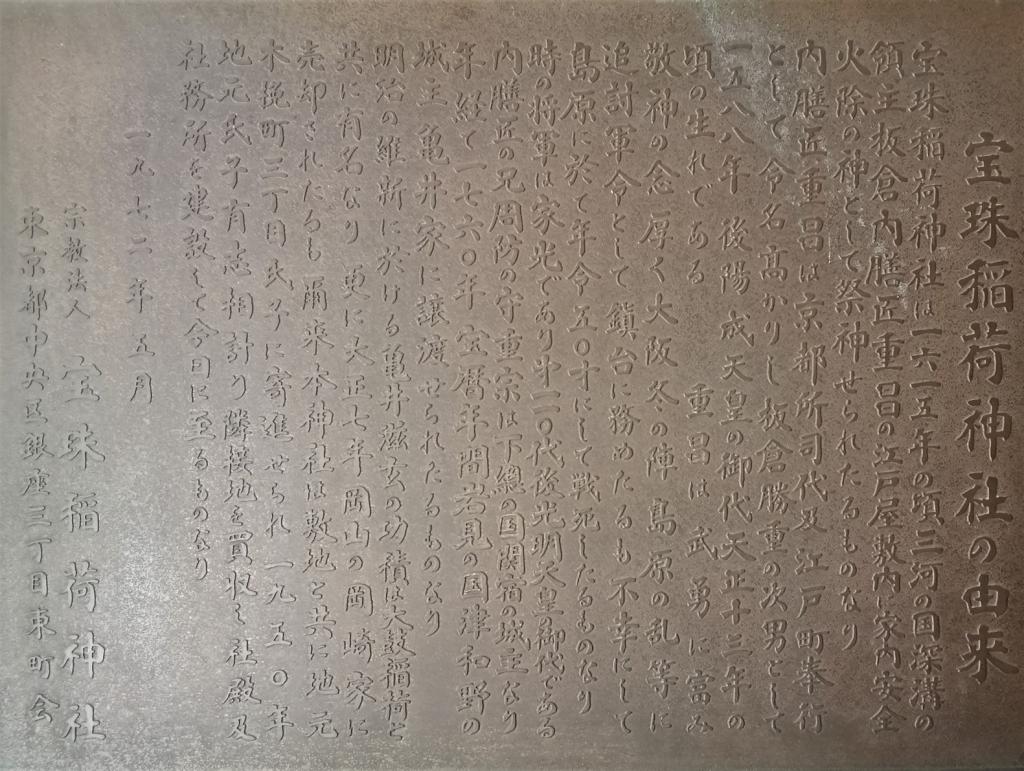 宝珠稲荷神社の由来
宝珠稲荷神社は一六一五年の頃三河の国深溝の
領主板倉内膳匠重昌の江戸屋敷内に家内安全
火除の神として祭神せられたるものなり
内膳匠重昌は京都所司代及江戸町奉行
として令名高かりし板倉勝重の次男として
一五八八年 後陽成天皇の御代天正十三年の
頃の生れである 重昌は武勇に富み
敬神の念厚く大阪冬の陣島原の乱等に
追討軍令として鎮台に務めたるも不幸にして
島原に於て年令五〇才にして戦死したるものなり
時の将軍は家光であり 一一〇代後光明天皇の御代である
内膳匠の兄周防の守重宗は下總の国関宿の城主なり
年経て一七六〇年宝暦年間岩見の国津和野の
城主亀井家に譲渡せられたるものなり
明治の維新に於ける亀井茲玄の功積は太鼓稲荷と
共に有名なり 更に大正七年岡山の岡崎家に
売却されたるも爾来本神社は敷地と共に地元
木挽町三丁目氏子に寄進せられ一九五〇年
地元氏子有志相計り隣接地を買収し社殿及
社務所を建設して今日に至るものなり
一九七二年五月
宗教法人 宝珠稲荷神社
東京都中央区銀座三丁目東町会